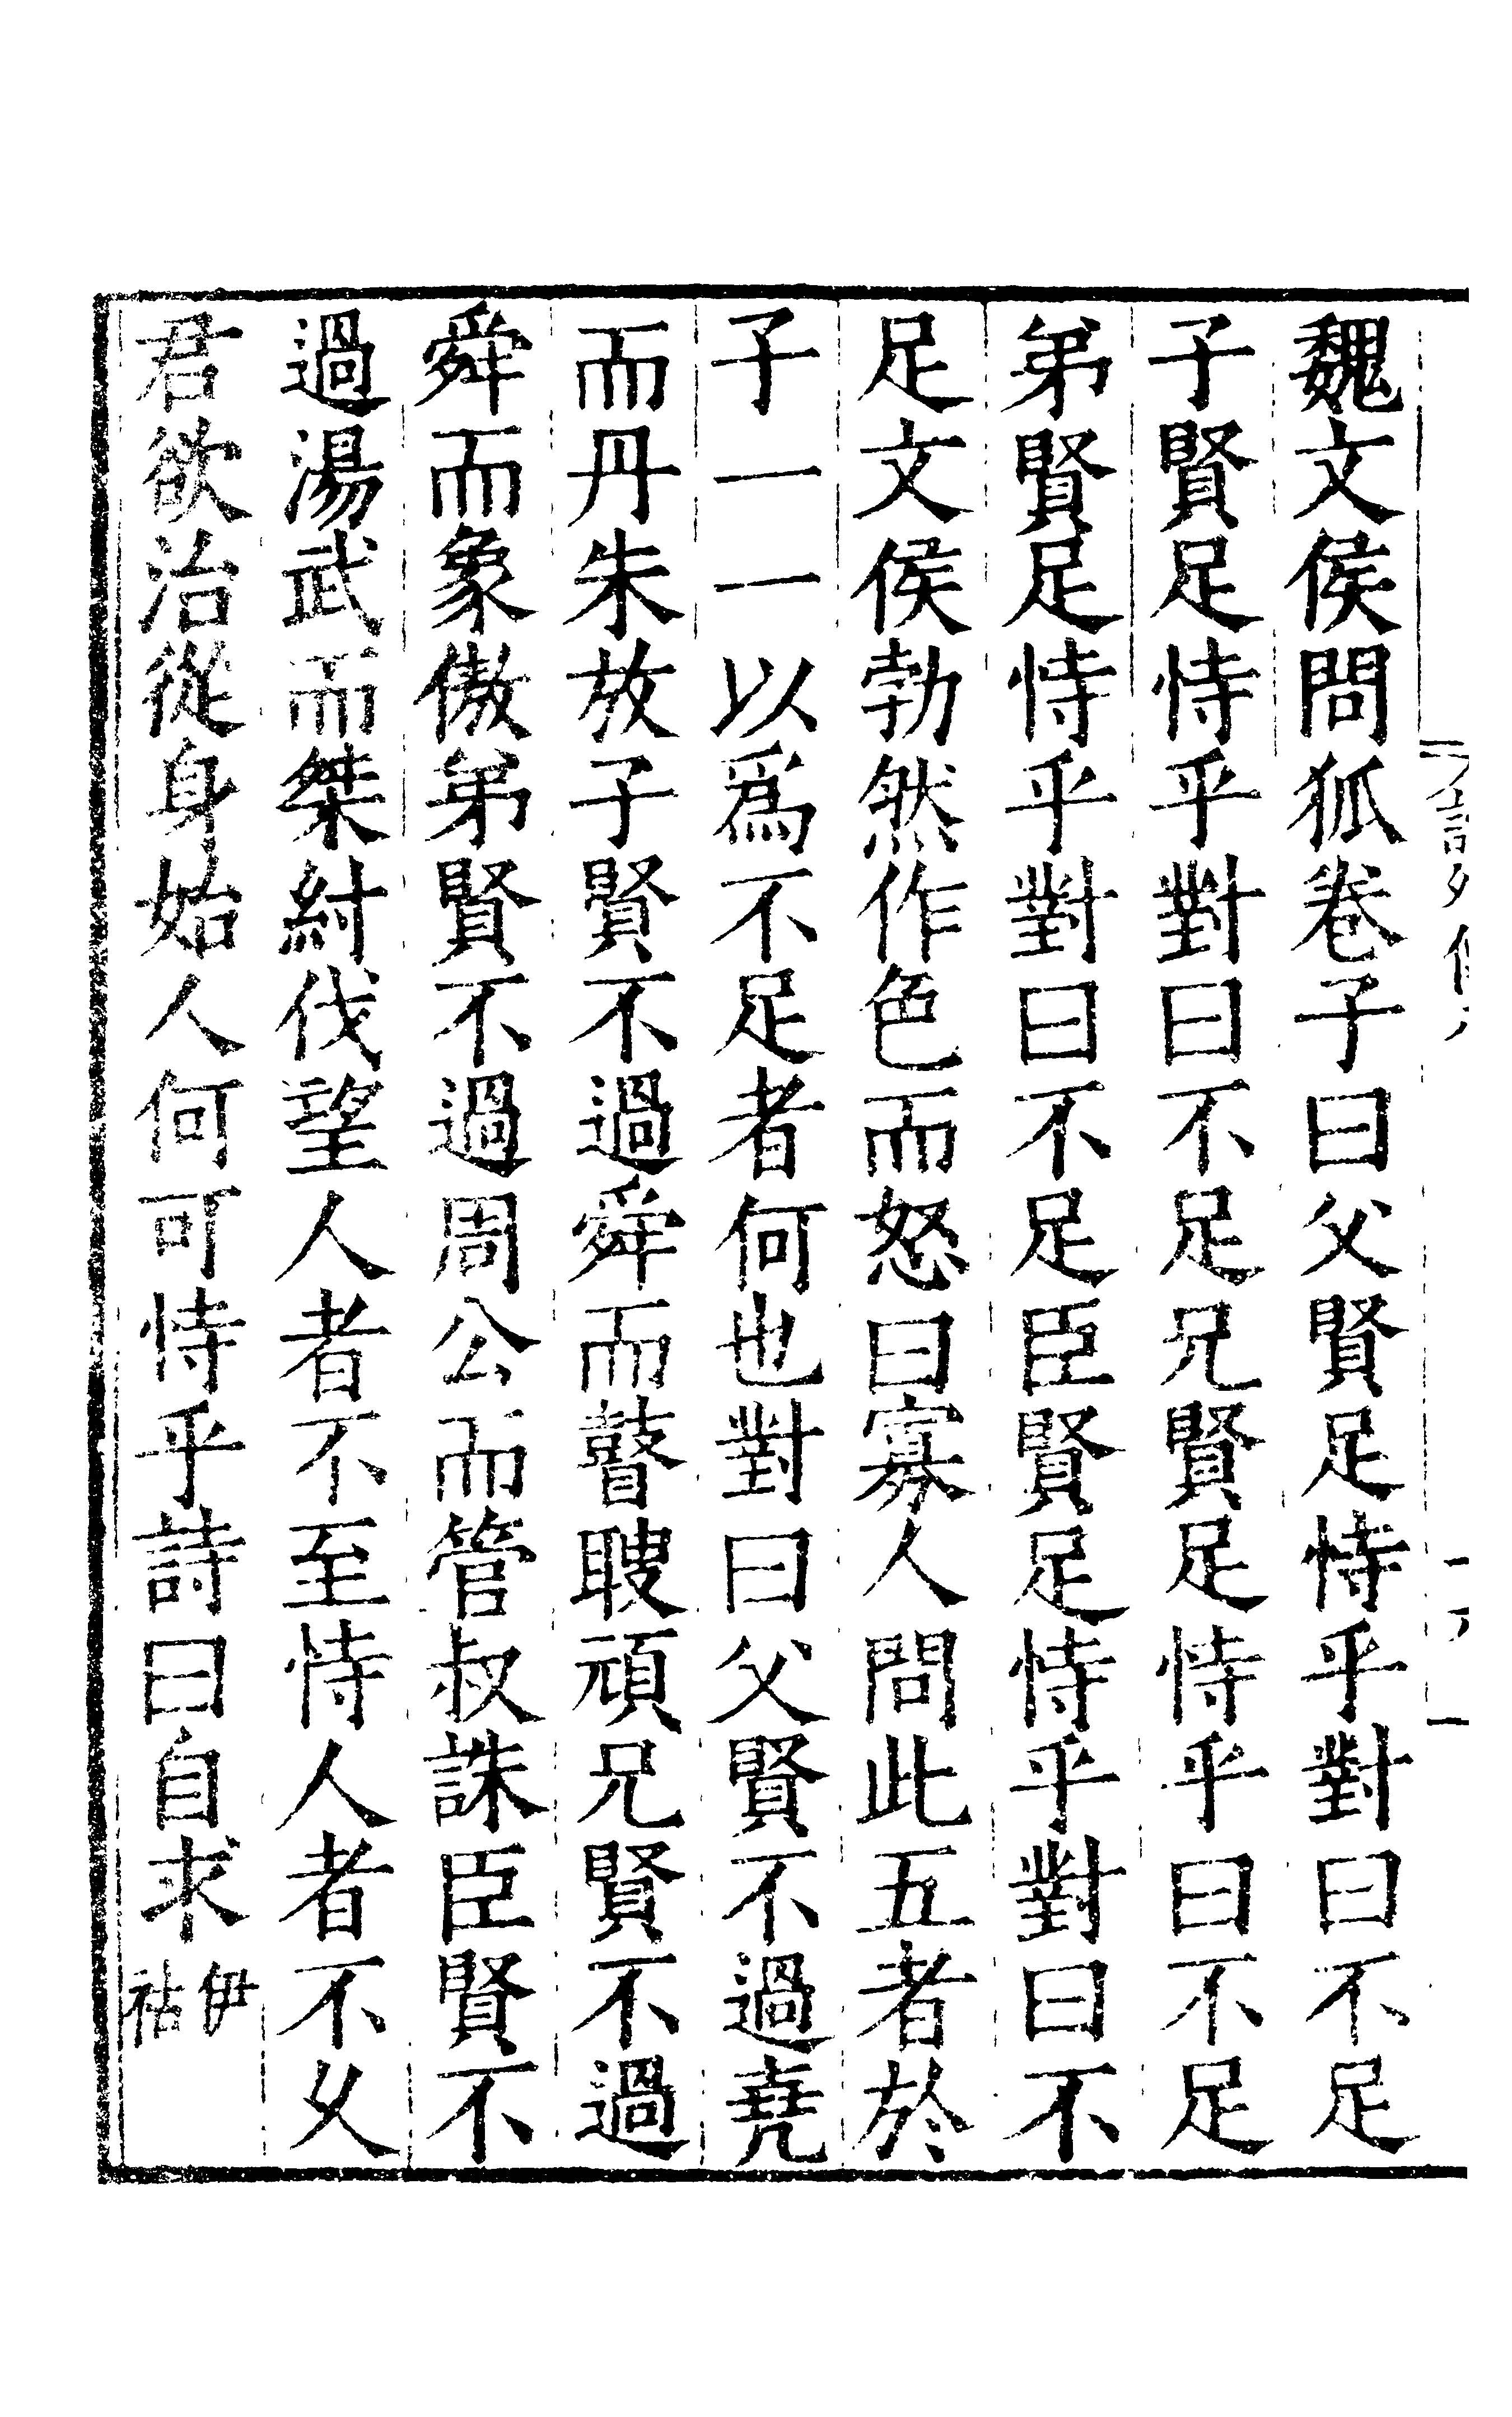 魏文侯問狐卷子曰父賢足恃乎對曰不足
子賢足恃乎對曰不足兄賢足恃乎曰不足
弟賢足恃乎對曰不足臣賢足恃乎對曰不
足文侯勃然作色而怒曰寡人問此五者於
子一一以爲不足者何也對曰父賢不過堯
而丹朱放子賢不過舜而瞽瞍頑兄賢不過
舜而象傲弟賢不過周公而管叔誅臣賢不
過湯武而桀紂伐望人者不至恃人者不久
君欲治從身始人何可恃乎詩曰自求伊祜